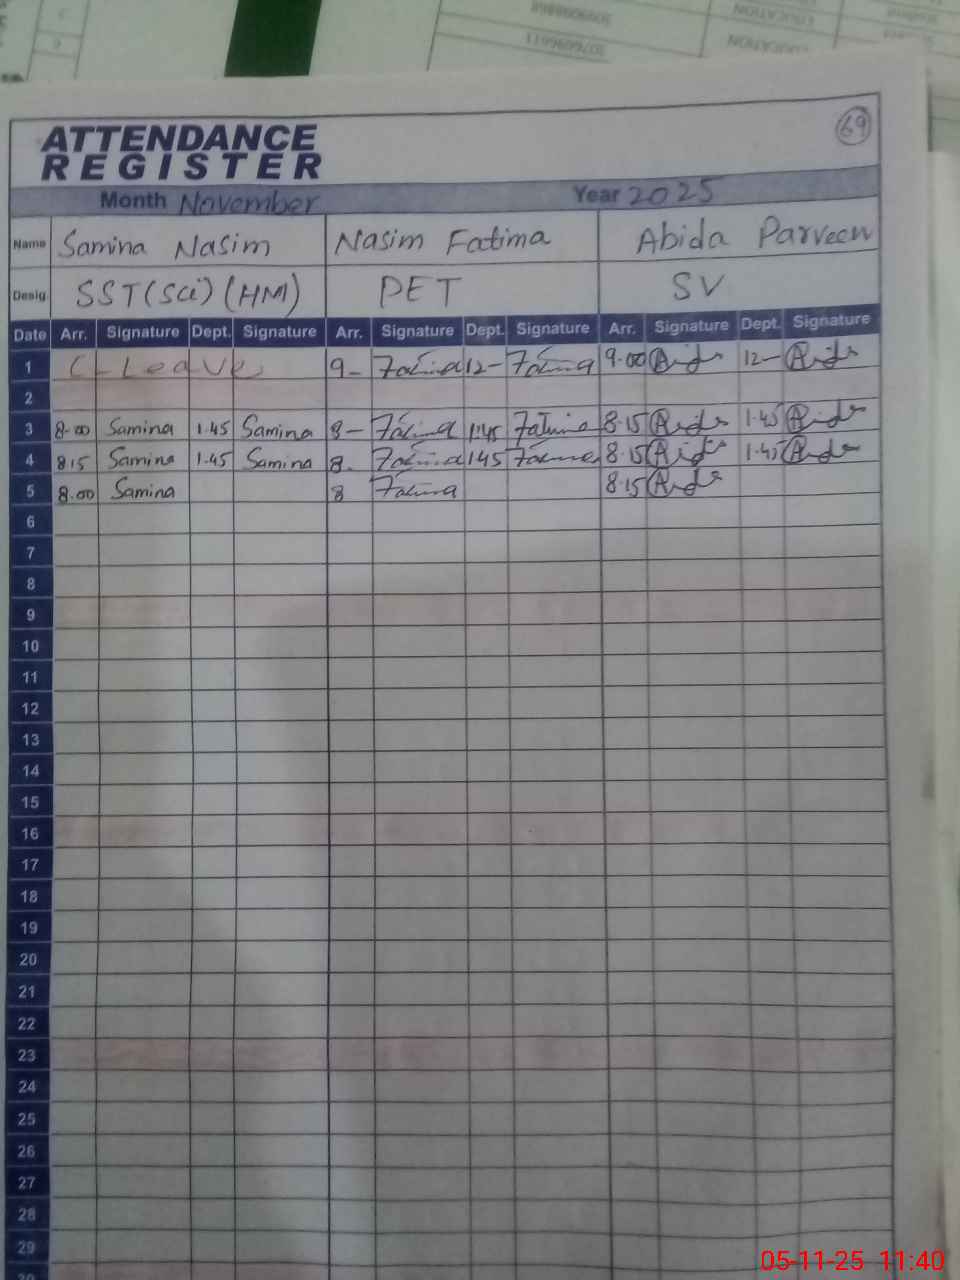 ATTENDANCE
REGISTER
69
Month November Year 2025
Name Samina Nasim Nasim Fatima Abida Parveen
Desig. SST(Sci) (HM) PET SV
Date Arr. Signature Dept. Signature Arr. Signature Dept. Signature Arr. Signature Dept. Signature
1 C Leave 9- Fatima 12- Fatima 9.00 12-
2
3 8.00 Samina 1.45 Samina 8- Fatima 1.45 Fatima 8.15 1.45
4 8.15 Samina 1.45 Samina 8. Fatima 1.45 Fatima 8.15 1.45
5 8.00 Samina 8 Fatima 8.15
6
7
8
9
10
11
12
13
14
15
16
17
18
19
20
21
22
23
24
25
26
27
28
29
30
05-11-25 11:40